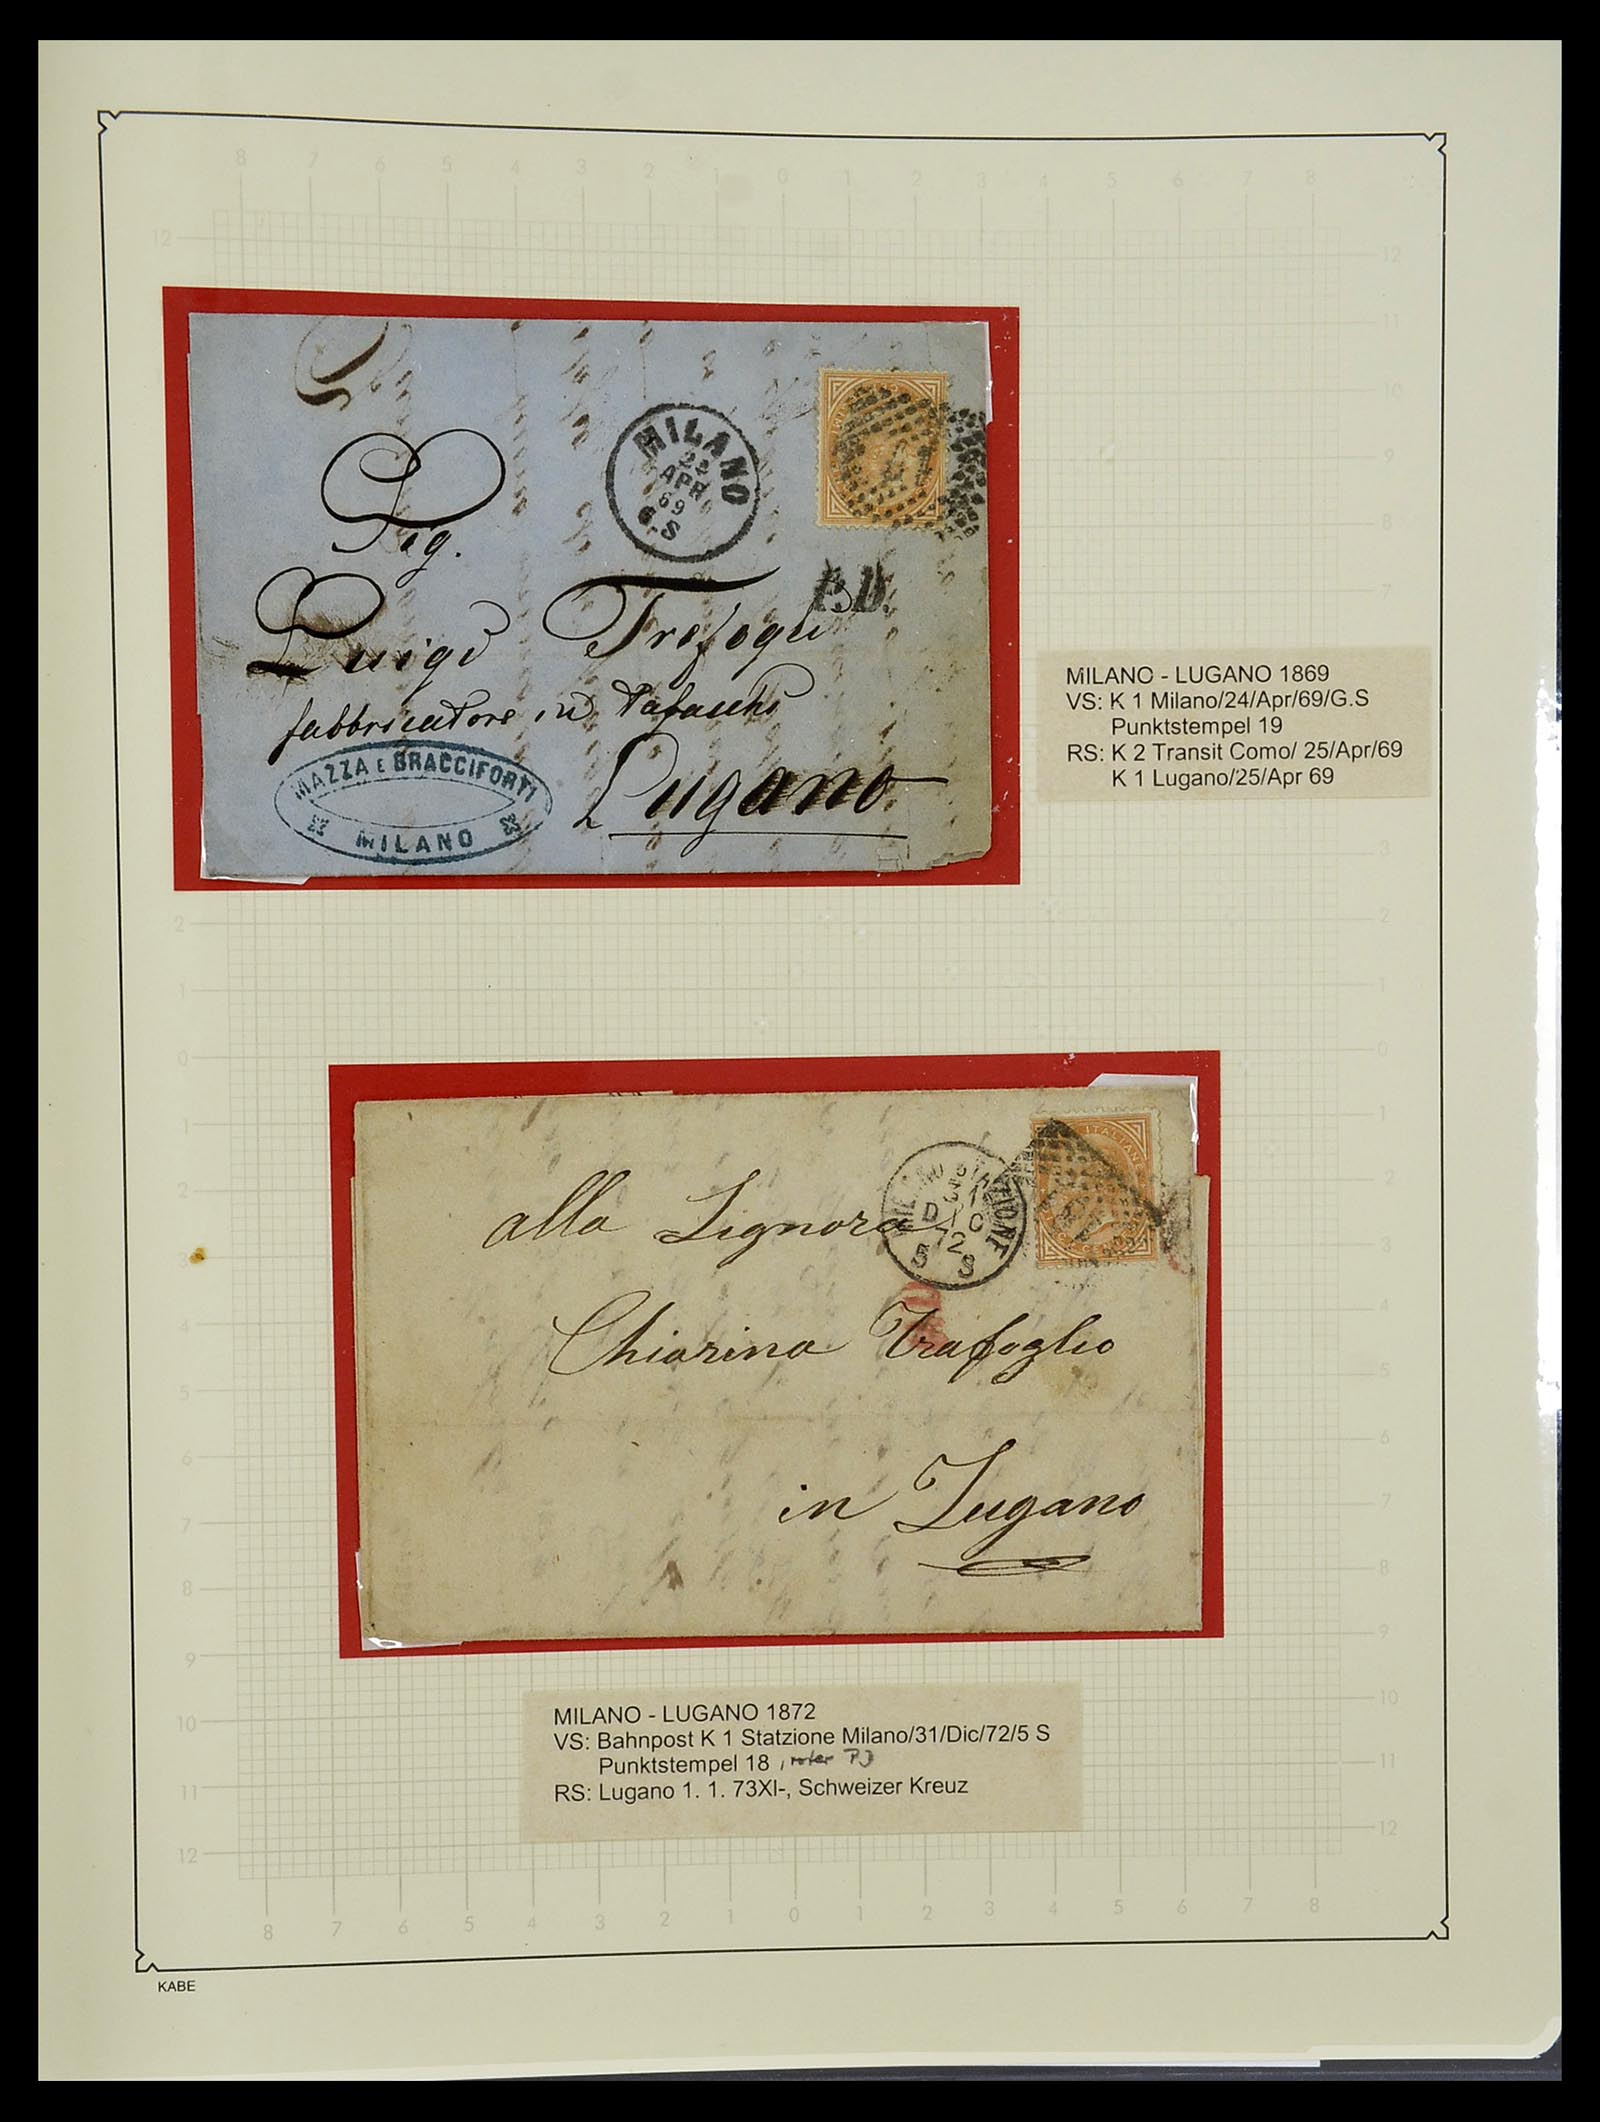 MILANO
22
APR
69
6.S
P.D.
Sig.
Luigi Trefogli
fabbricatore in Tabacchi
Lugano
MAZZA E BRACCIFORTI
MILANO
MILANO - LUGANO 1869
VS: K 1 Milano/24/Apr/69/G.S
Punktstempel 19
RS: K 2 Transit Como/ 25/Apr/69
K 1 Lugano/25/Apr 69
ITALIANE
MILANO STAZIONE
31
DIC
72
5 S
alla Signora
Chiarina Trafoglio
in Lugano
MILANO - LUGANO 1872
VS: Bahnpost K 1 Statzione Milano/31/Dic/72/5 S
Punktstempel 18, roter PD
RS: Lugano 1. 1. 73XI-, Schweizer Kreuz
KABE